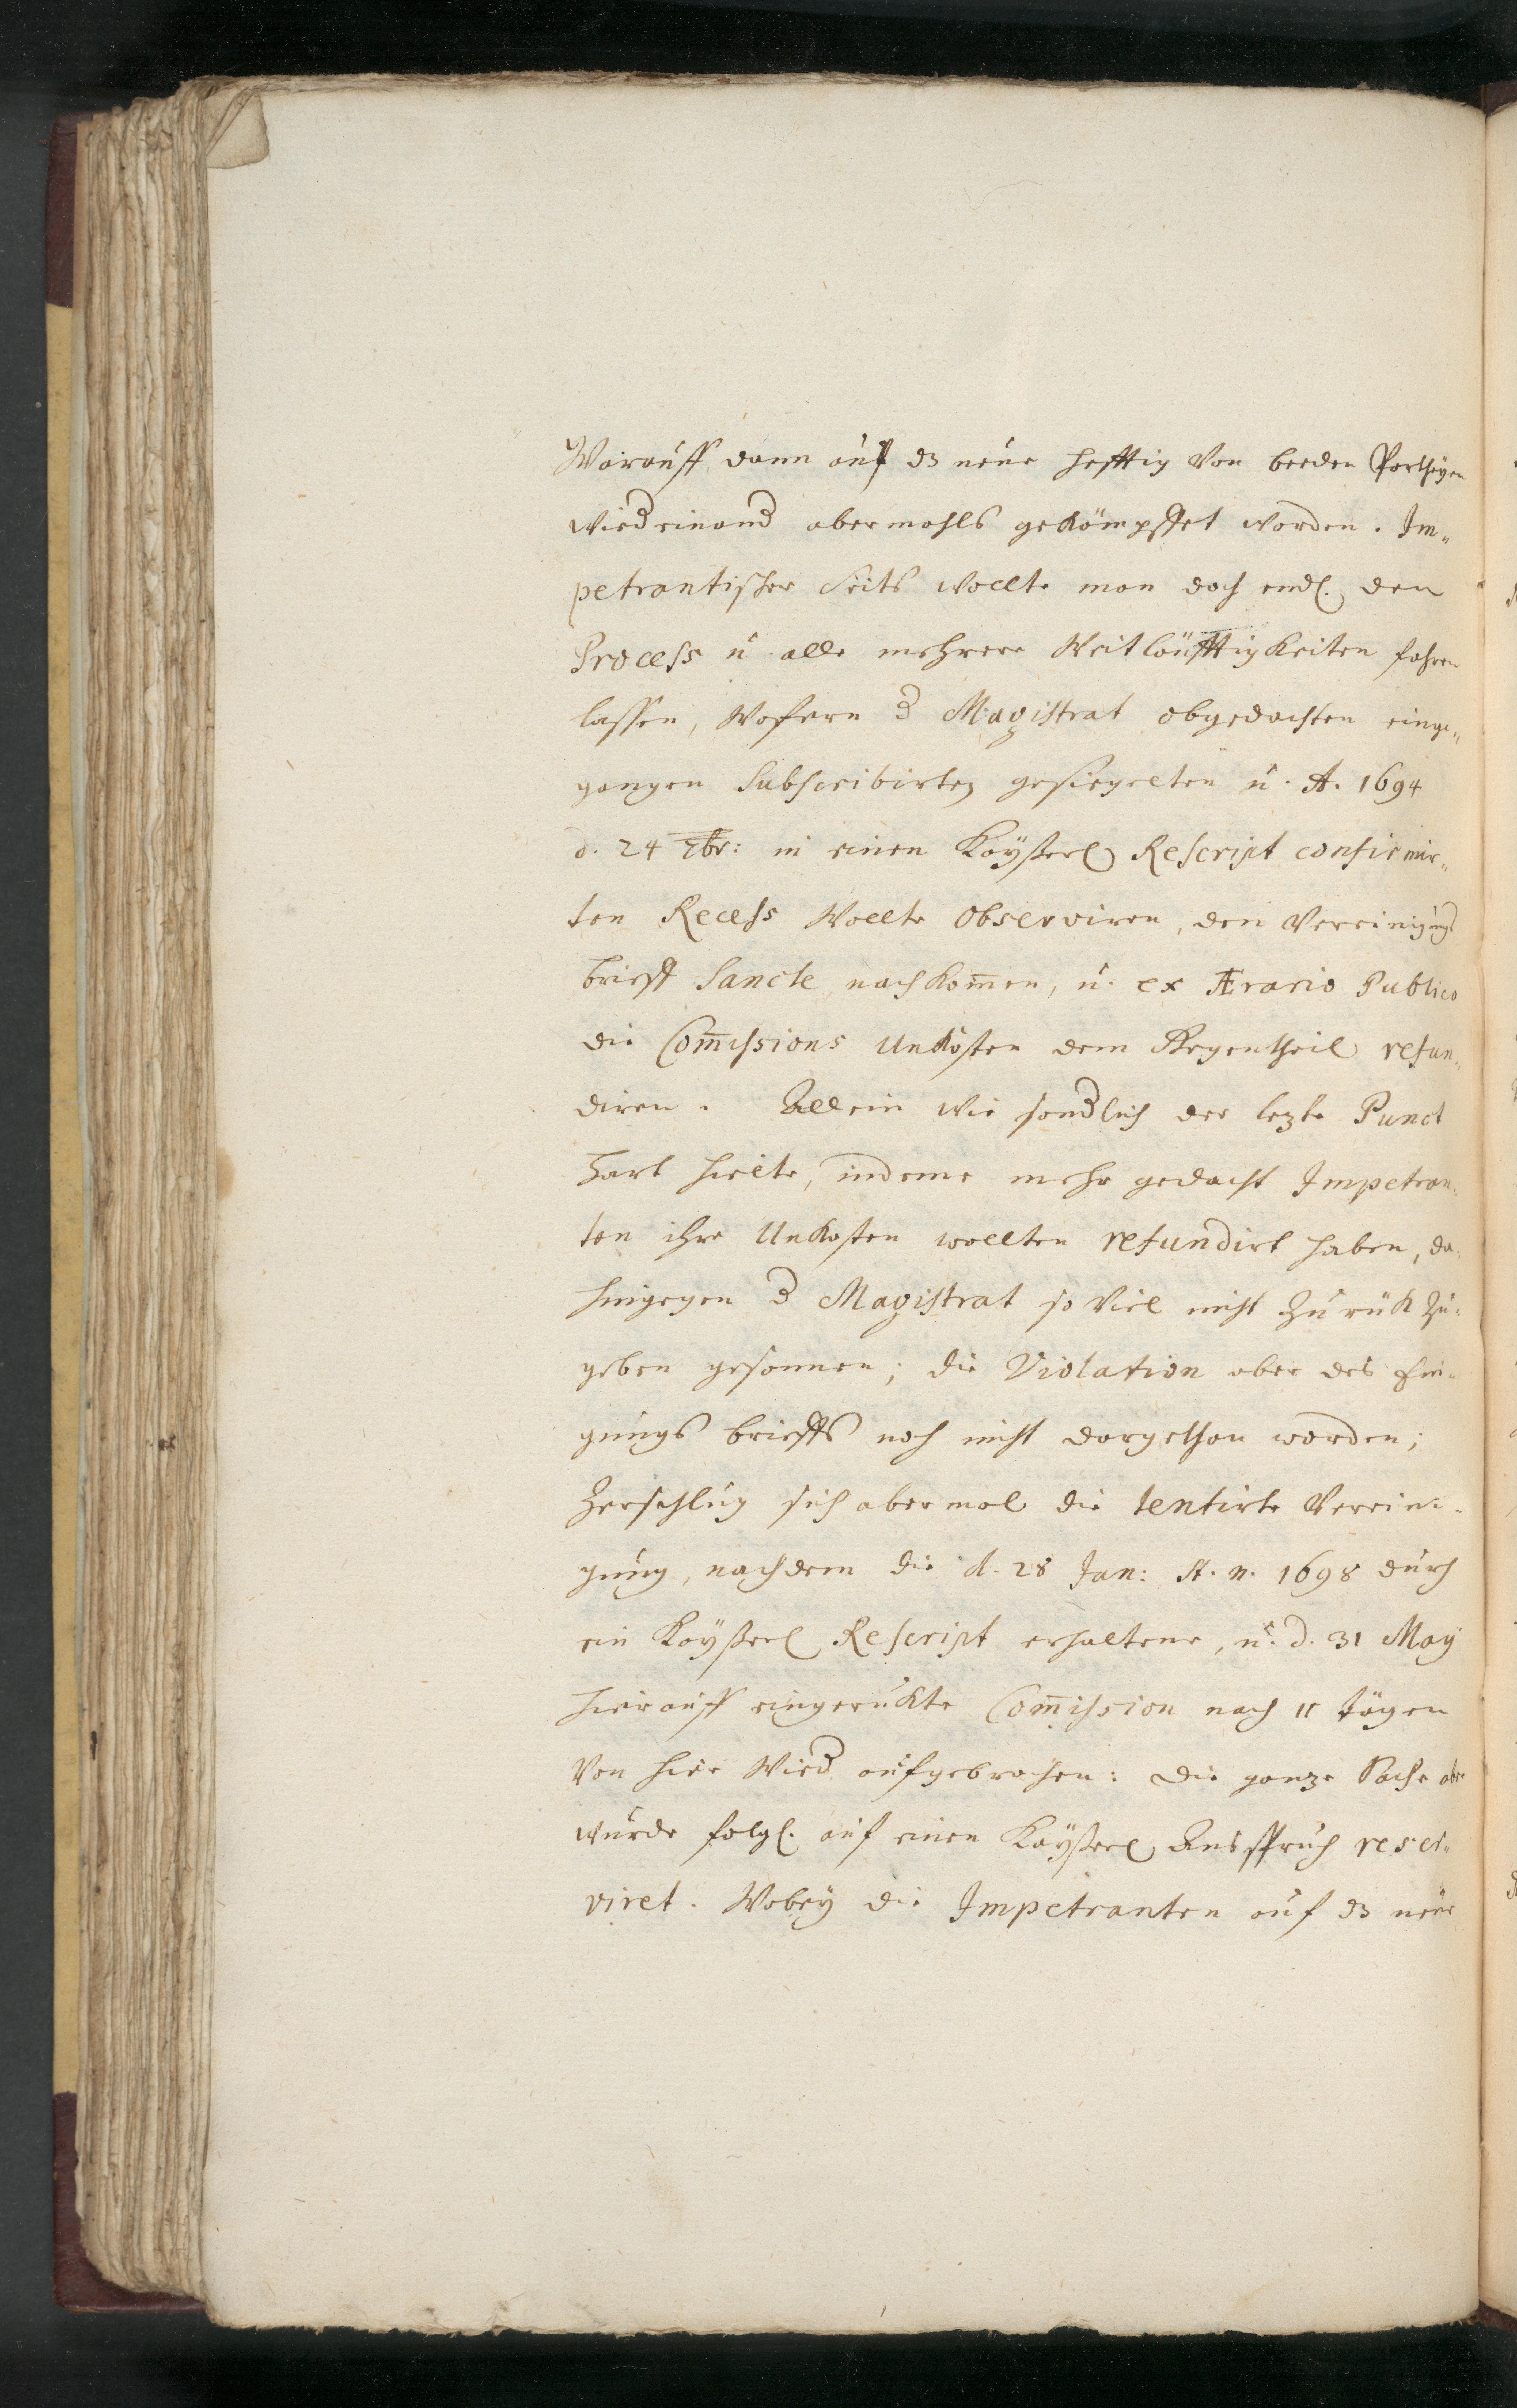 Worauff dann auf dz neue hefftig von beeden Partheyen
wiedeinand abermahls gekämpffet worden. Im„
petrantischer Seits wollte man doch endl. den
Process u. alle mehrere Weitläufftigkeiten fahren
lassen, wofern d Magistrat obgedachten einge„
gangen subscribirten gesiegelten u. A. 1694
d. 24 7br: in einen Kayßerl Rescript confirmir„
ten Recess wollte observiren, den Vereinigungs
brieff sancte nachkom̄en, u. ex Ærario Publico
die Com̄issions Unkosten dem Gegentheil refun„
diren. Allein wie sondlich der lezte Punct
hart hielte, indeme mehr gedacht Impetran„
ten ihre Unkosten wollten refundirt haben, da„
hingegen d Magistrat so viel nicht zurük zu„
geben gesonnen; die Violation aber des Eini„
gungs brieffs noch nicht dargethan worden;
Zerschlug sich abermal die tentirte Vereini„
gung, nachdem die d. 28 Jan: A. n. 1698 durch
ein Kayßerl Rescript erhaltene, u. d. 31 May
hierauff eingerukte Com̄ission nach 11 tägen
von hier wied aufgebrochen: die ganze Sache aber
wurde folgl. auf einen Kayßerl Ausspruch reser„
viret. Wobey die Impetranten auf dz neue